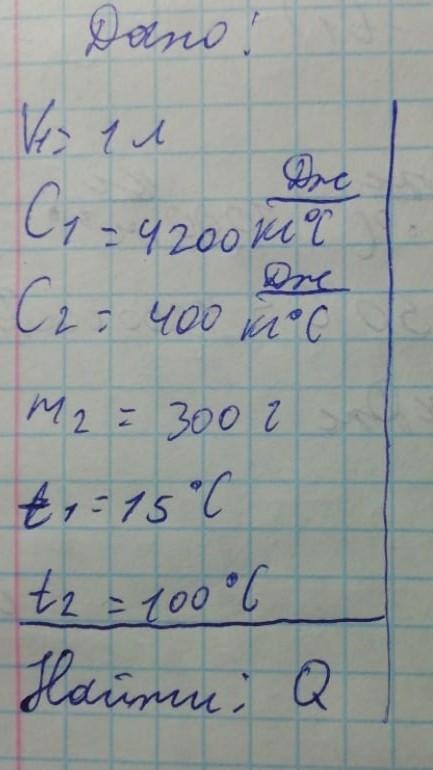 Дано:
V₁ = 1 л
C₁ = 4200 Дж/кг°C
C₂ = 400 Дж/кг°C
m₂ = 300 г
t₁ = 15°C
t₂ = 100°C
Найти: Q